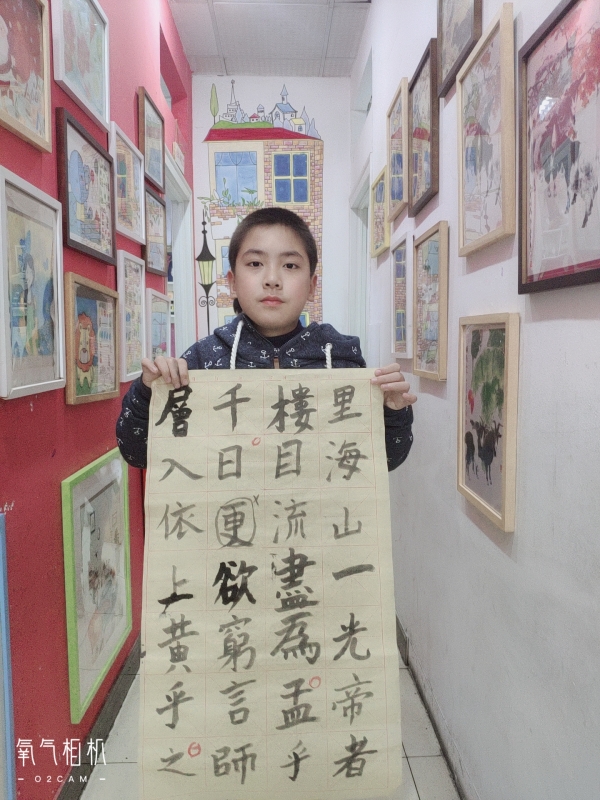 里海山一光帝者
樓目流盡為孟乎
千日更欲窮言師
層入依上黄乎之
氧气相机
- O2CAM -